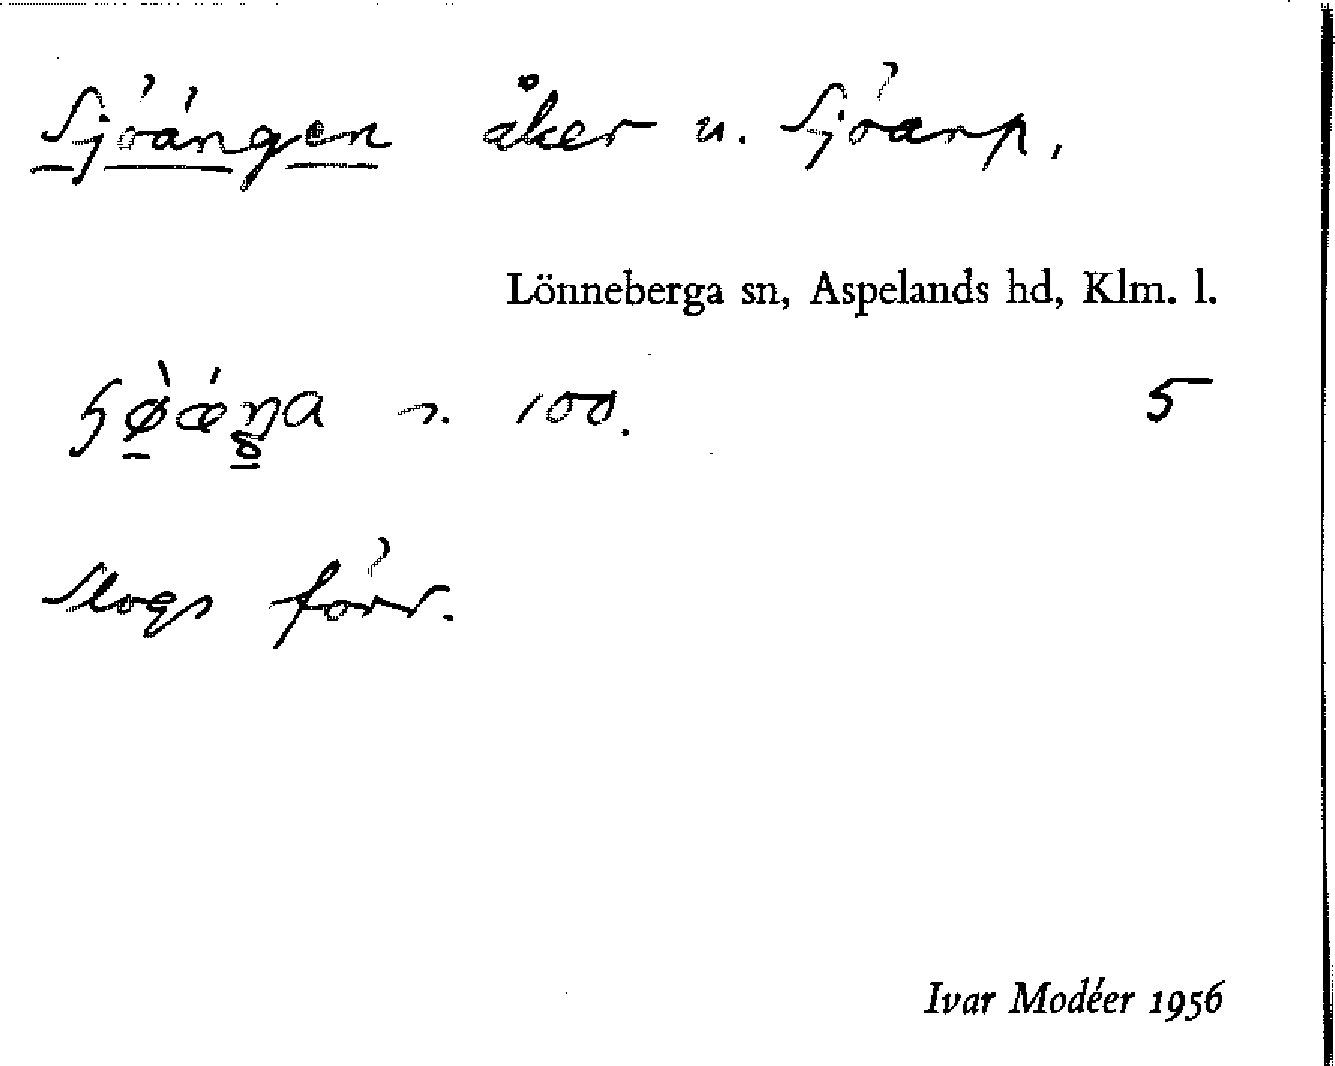 Sjöängen åker u. Sjöarp,
Lönneberga sn, Aspelands hd, Klm. l.
100. 5
Slogs förr.
Ivar Modéer 1956